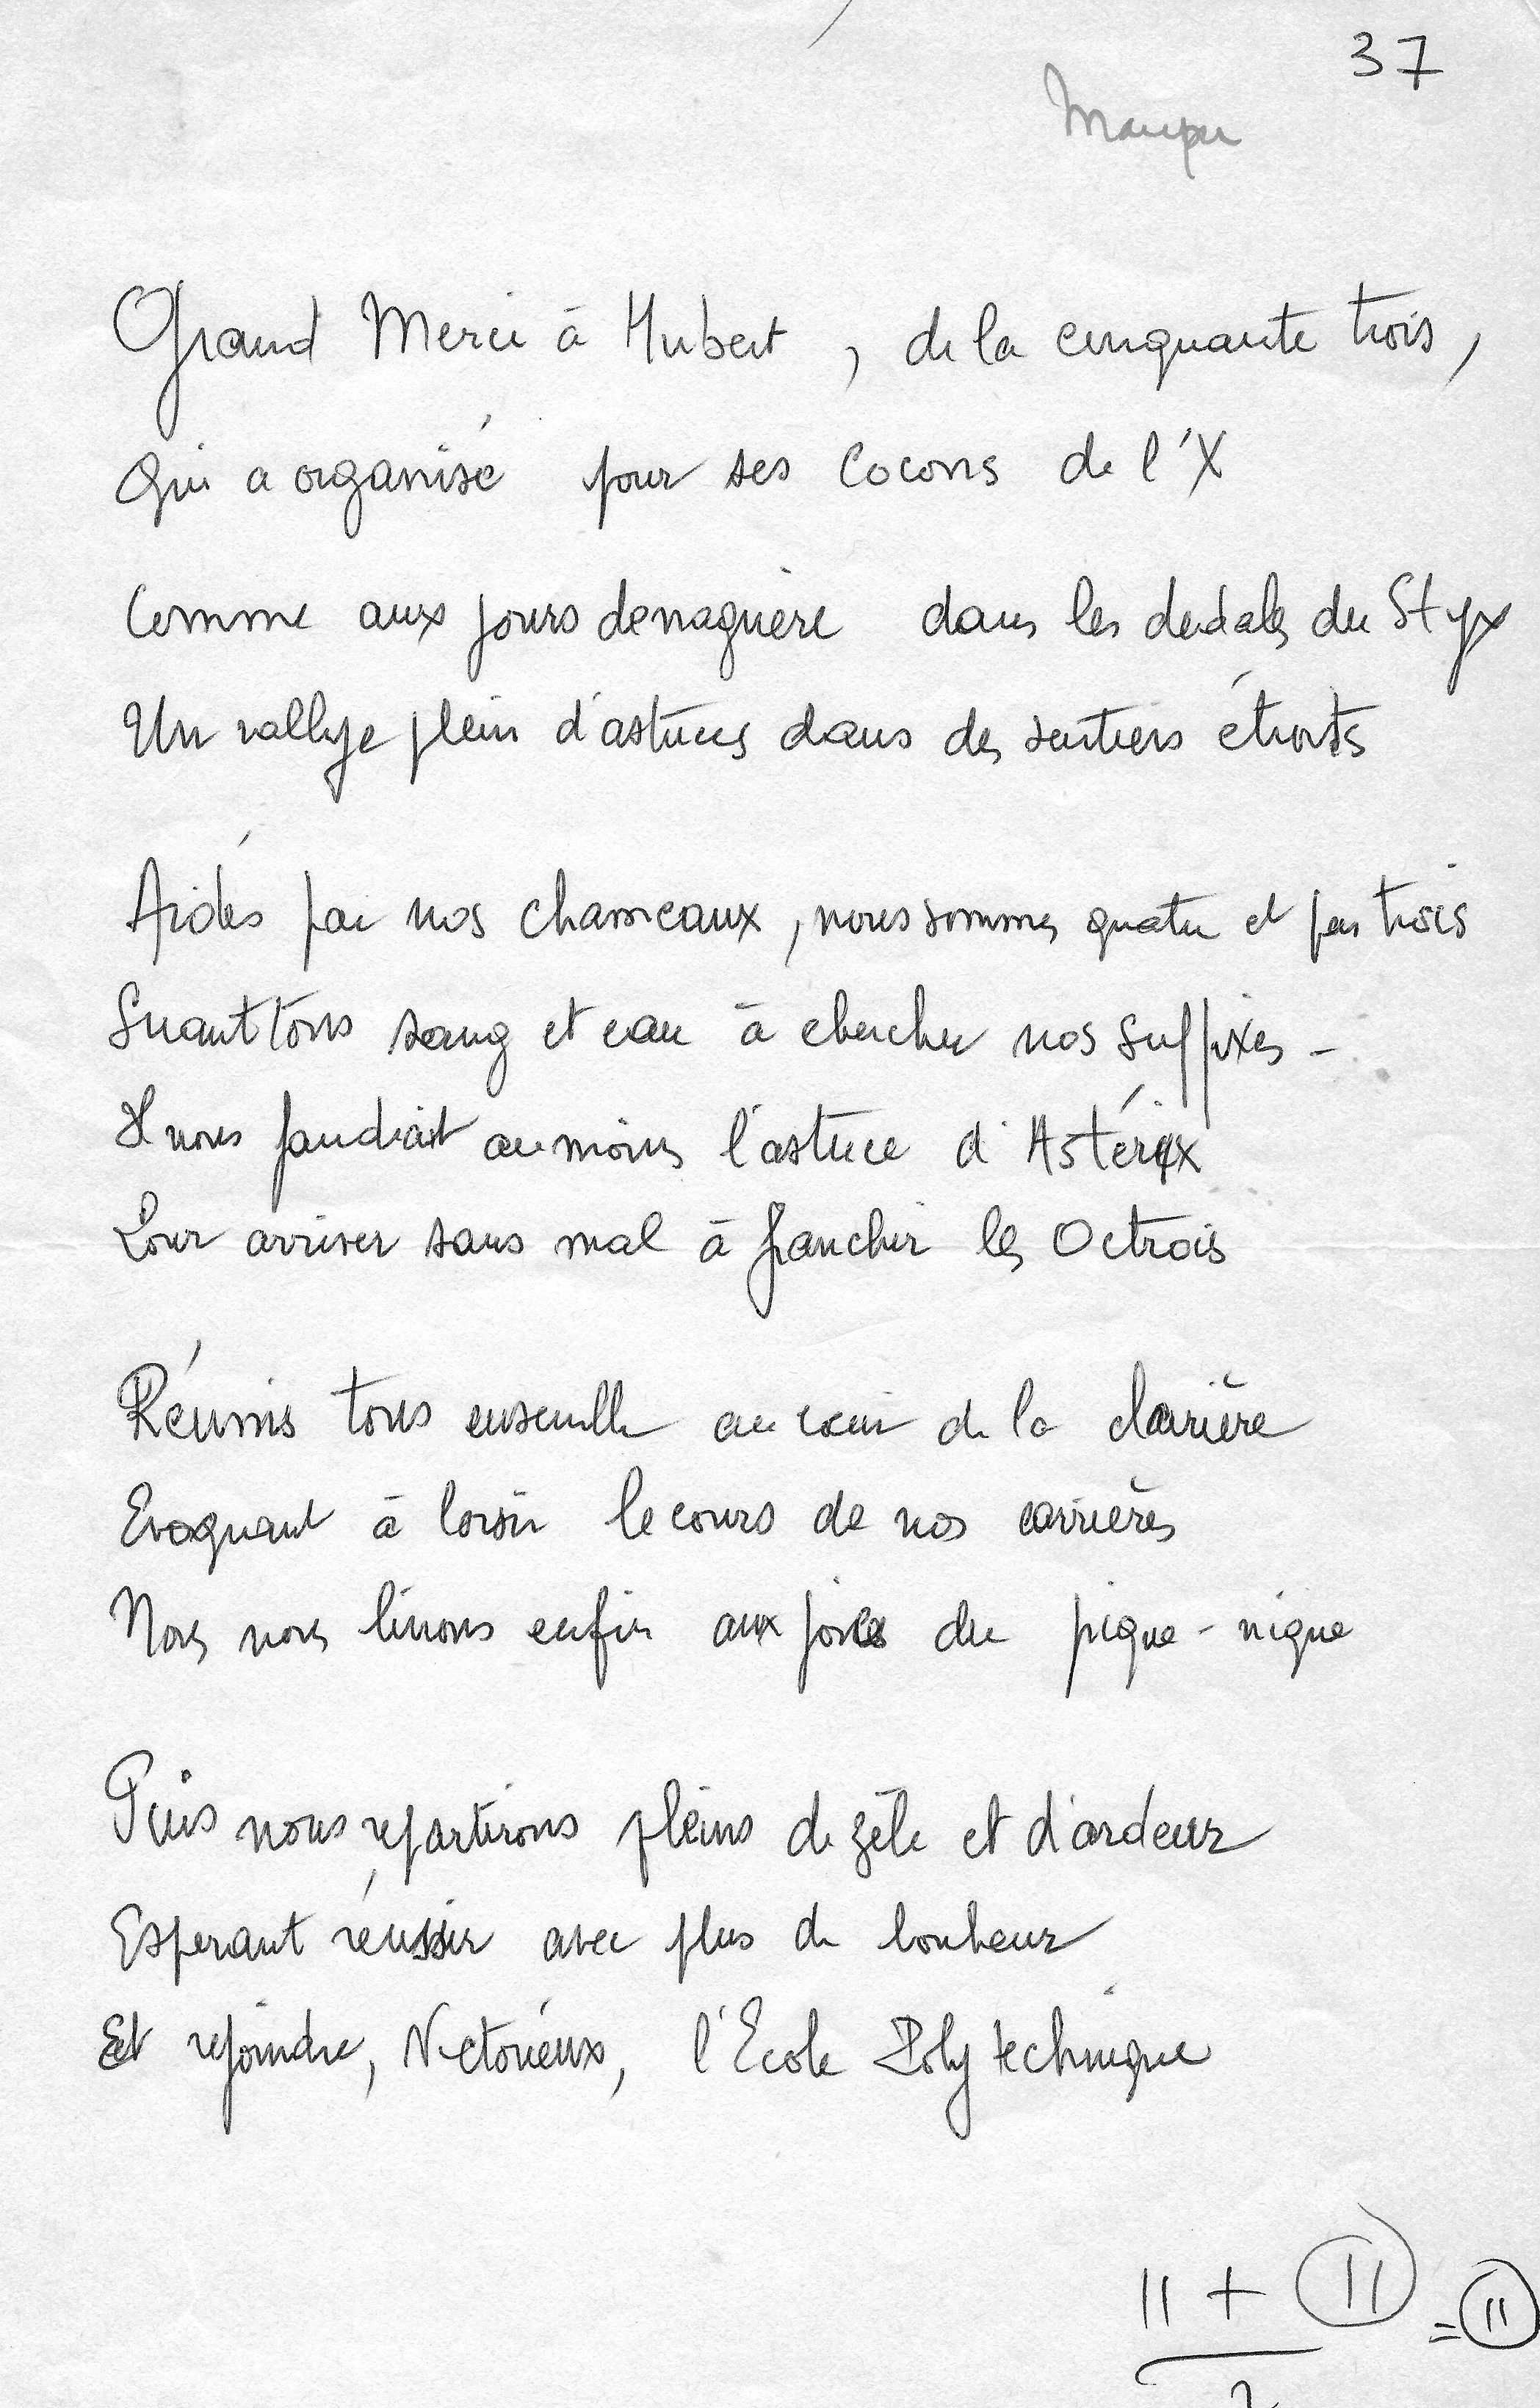 37
Maupu
Grand Merci à Hubert, de la cinquante trois,
Qui a organisé pour ses Cocons de l'X
Comme aux jours de naguère dans les dedales du Styx
Un rallye plein d'astuces dans des sentiers étroits
Aidés par nos chameaux, nous sommes quatre et pas trois
Suant tous sang et eau à chercher nos suffixes -
Il nous faudrait au moins l'astuce d'Astérix
Pour arriver sans mal à franchir les Octrois
Réunis tous ensemble au cœur de la clairière
Evoquant à loisir le cours de nos carrières
Nous nous livrons enfin aux joies du pique-nique
Puis nous repartirons pleins de zèle et d'ardeur
Esperant réussir avec plus de bonheur
Et rejoindre, Victorieux, l'École Polytechnique
11 + 11 = 11
2